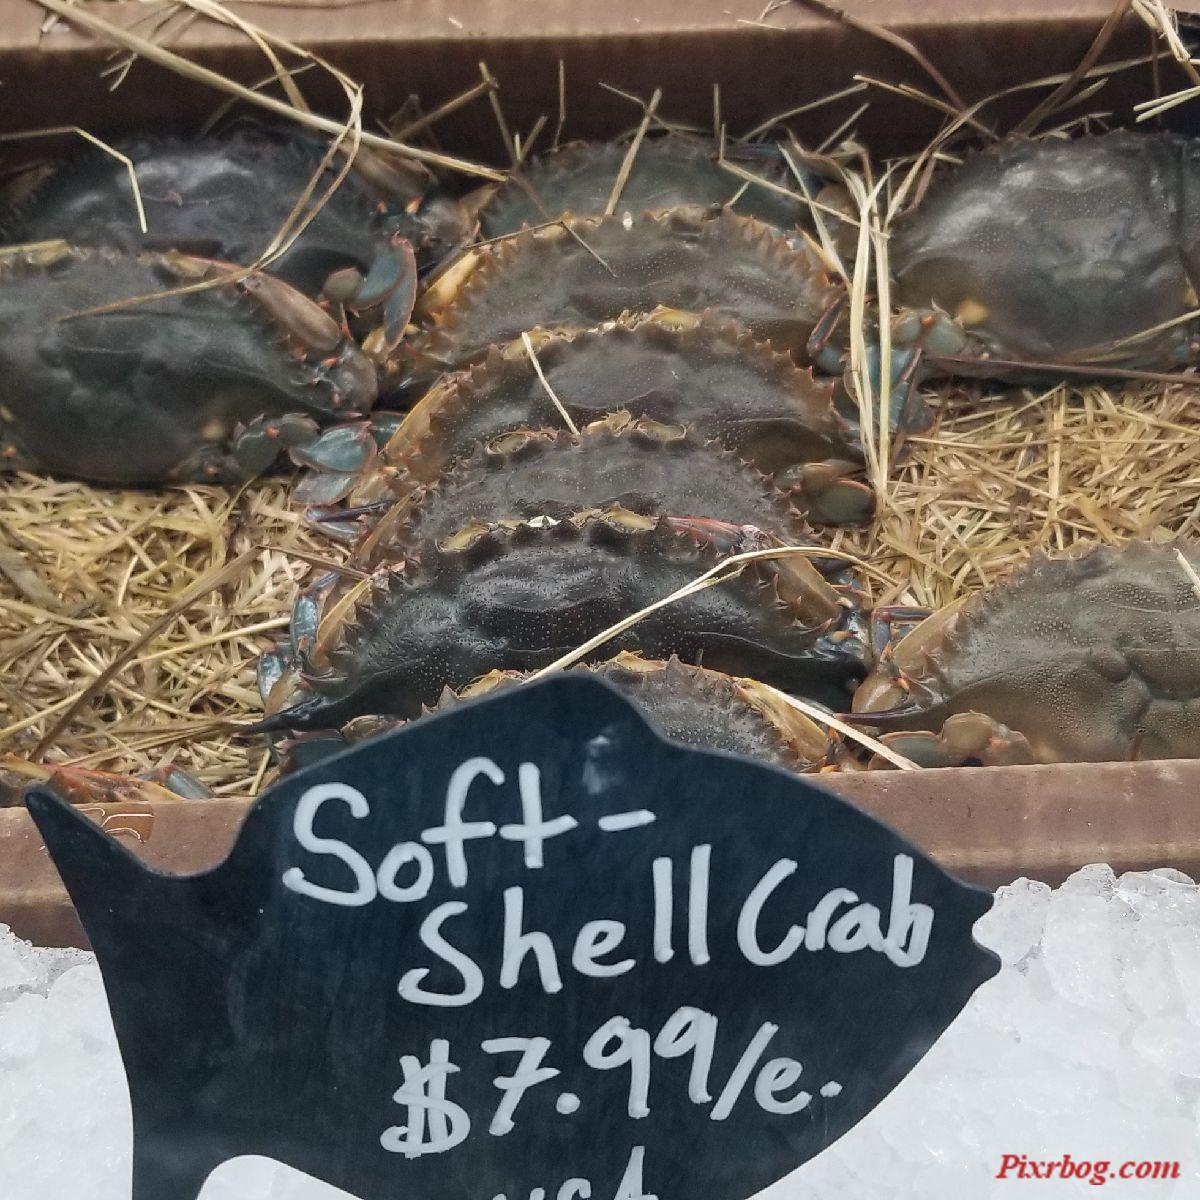 Soft-
Shell Crab
$7.99/e.
Pixrbog.com